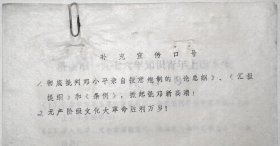 补充宣传口号
1、彻底批判邓小平亲自授意炮制的《论总纲》、《汇报
提纲》和《条例》，掀起批邓新高潮！
2、无产阶级文化大革命胜利万岁！